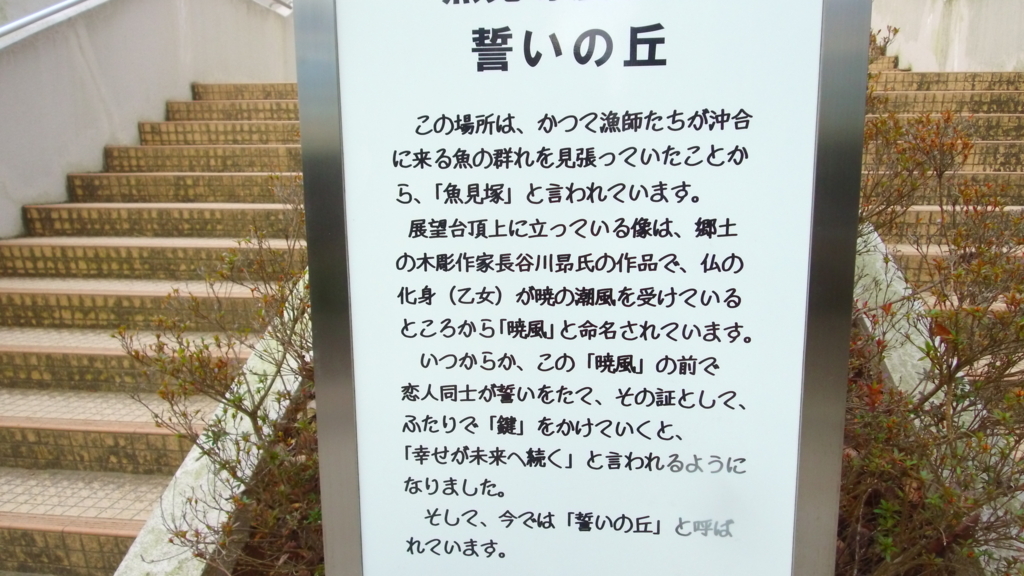 誓いの丘
この場所は、かつて漁師たちが沖合
に来る魚の群れを見張っていたことか
ら、「魚見塚」と言われています。
展望台頂上に立っている像は、郷土
の木彫作家長谷川昂氏の作品で、仏の
化身（乙女）が暁の潮風を受けている
ところから「暁風」と命名されています。
いつからか、この「暁風」の前で
恋人同士が誓いをたて、その証として、
ふたりで「鍵」をかけていくと、
「幸せが未来へ続く」と言われるように
なりました。
そして、今では「誓いの丘」と呼ば
れています。